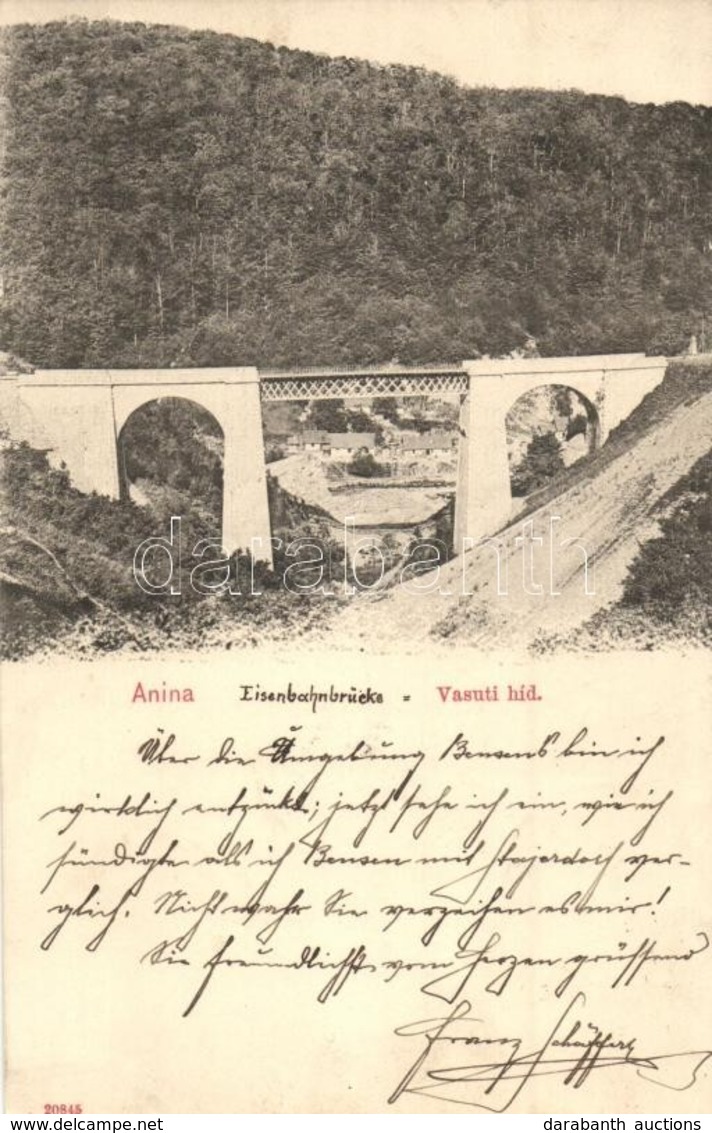 darabanth
Anina Eisenbahnbrücke = Vasuti híd.
Über die Umgebung bin ich
wirklich entzückt; jetzt sehe ich ein, wie ich
sündigte als ich mit Stajerdorf ver-
glich. Nicht wahr Sie verzeihen es mir!
Sie freundlichst vom Herzen grüssend
Franz
20845
www.delcampe.net
darabanth auctions